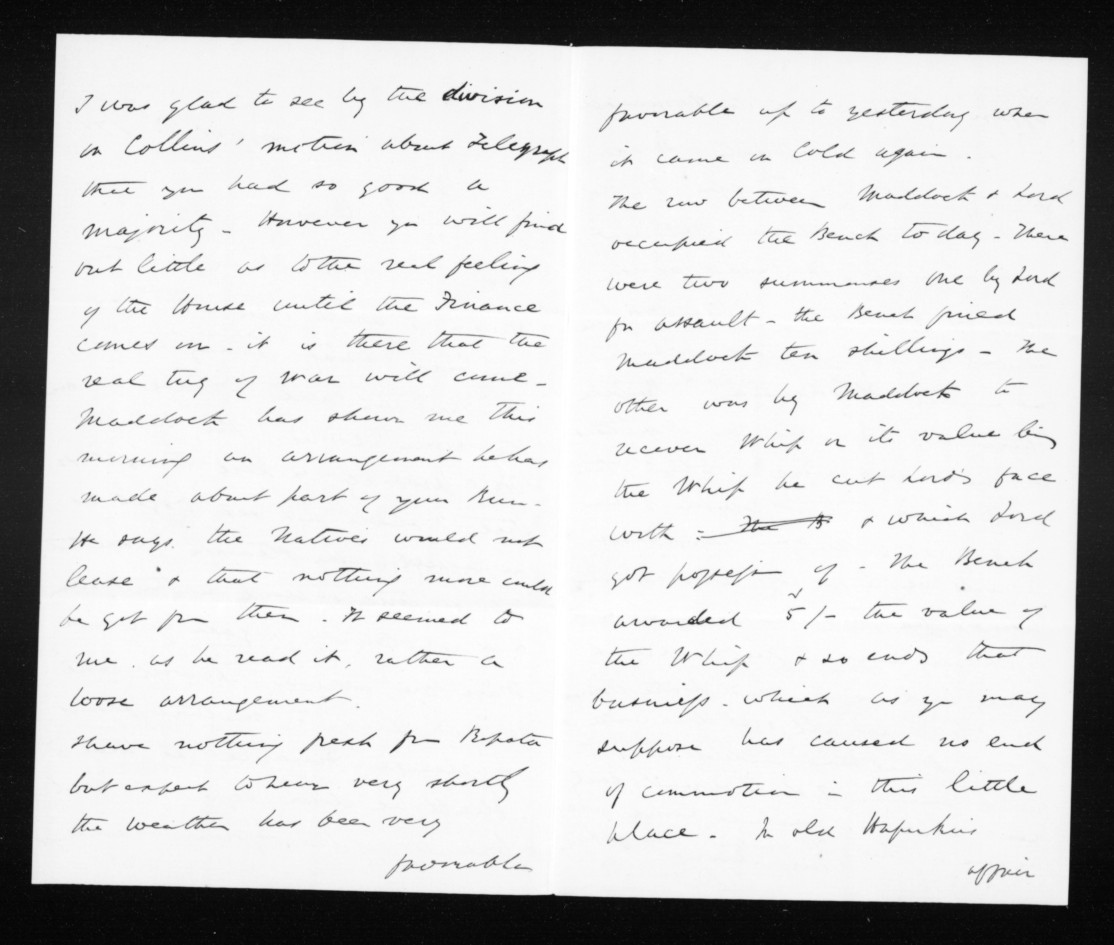 I was glad to see by the division
on Collins' motion about Telegraph
that you had so good a
majority - However you will find
out little as to the real feeling
of the House until the Finance
comes on - it is there that the
real tug of war will come -
Maddock has shown me this
morning an arrangement he has
made about part of your Run -
He says the Natives would not
lease & that nothing more could
be got from them. It seemed to
me, as he read it, rather a
loose arrangement.
I have nothing fresh from
but expect to hear very shortly
the weather has been very
favorable
favorable up to yesterday when
it came on Cold again.
The row between Maddock & Lord
occupied the Bench today - There
were two summonses one by Lord
for assault - the Bench fined
Maddock ten shillings - The
other was by Maddock to
recover Whip or its value being
the Whip he cut Lord's face
with - The B & which Lord
got possession of - The Bench
awarded 5/- the value of
the Whip & so ends that
business - which as you may
suppose has caused no end
of commotion in this little
place - In old
affair